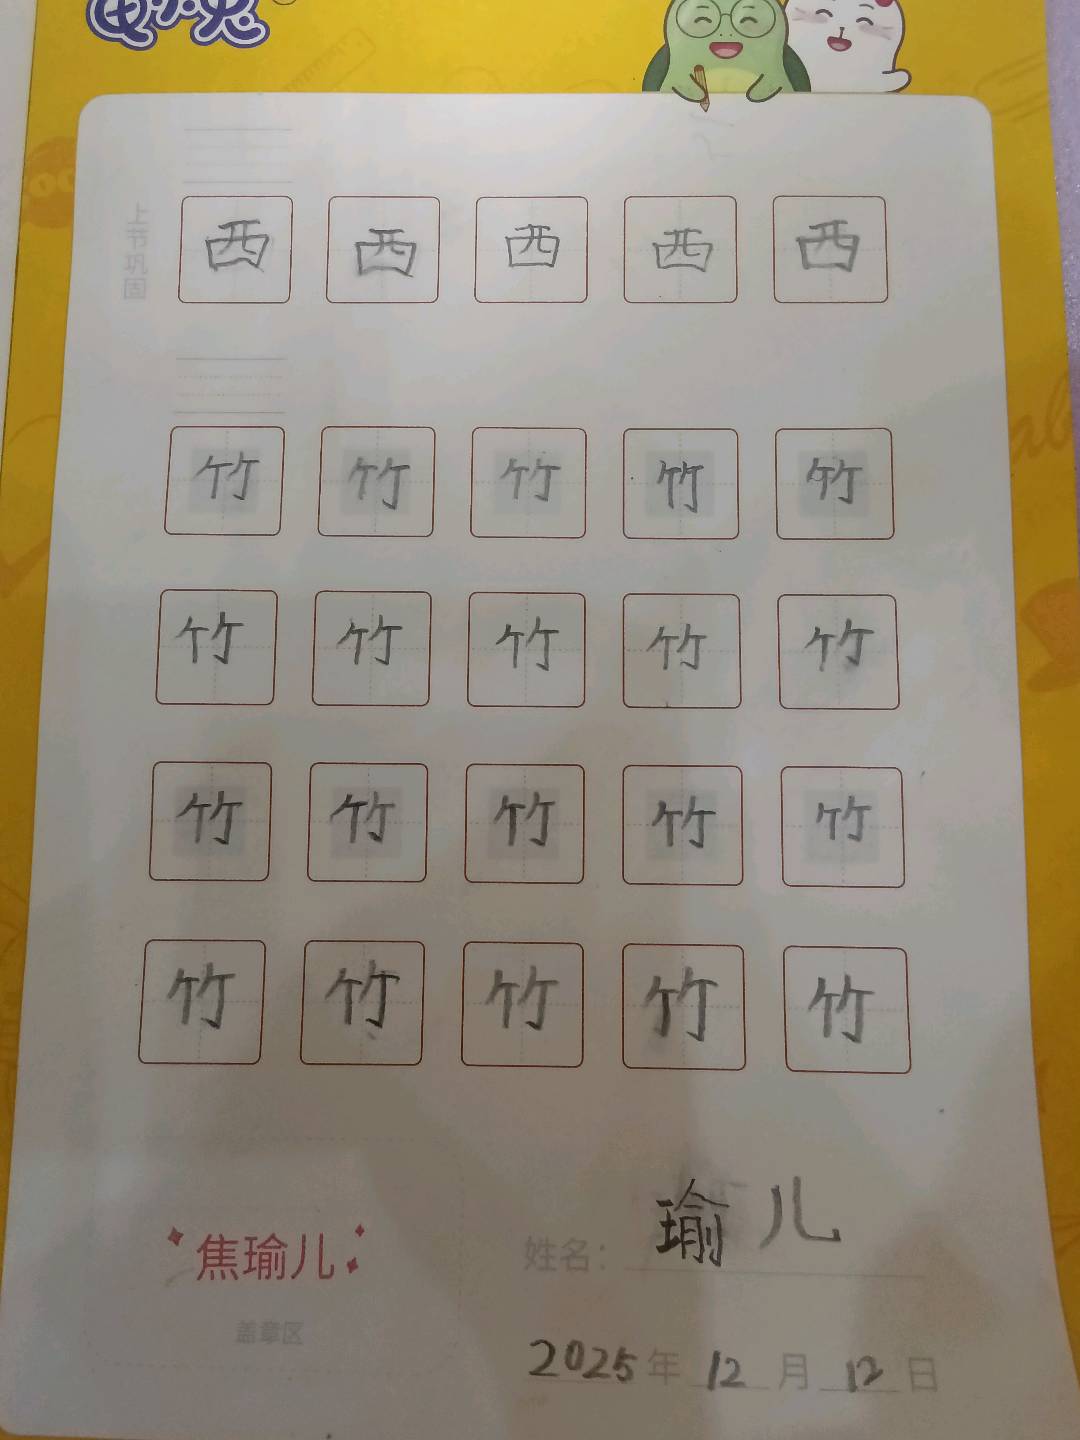 上节巩固
西 西 西 西 西
竹 竹 竹 竹 竹
竹 竹 竹 竹 竹
竹 竹 竹 竹 竹
竹 竹 竹 竹 竹
焦瑜儿
盖章区
姓名: 瑜儿
2025年 12月 12日